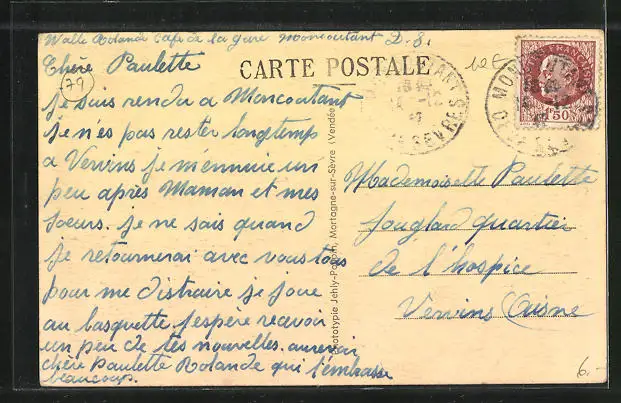 Walle Rolande Café de la gare Moncoutant D. S.
Chère Paulette
79
CARTE POSTALE
je suis rendu a Moncoutant
je n'és pas rester longtemp
a Vervins je m'ennuie un
peu après Maman et mes
soeurs. je ne sais quand
je retournerai avec vous tous
pour me distraire je joue
au basquette j'espère recevoir
un peu de tes nouvelles. aurevoir
chère Paulette Rolande qui t'embrasse
beaucoup.
Phototypie Jehly-Poupin, Mortagne-sur-Sèvre (Vendée)
Mademoiselle Paulette
Jouglard quartier
de l'hospice
Vervins (Aisne
1F50
SEVRES
6.-